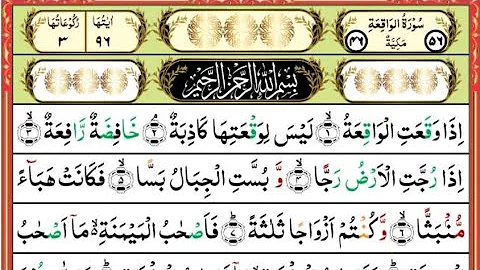 سُوْرَةُ الْوَاقِعَةِ
مَكِّيَّةٌ
٥٦
٤٦
اٰيٰتُهَا ٩٦
رُكُوْعَاتُهَا ٣
بِسْمِ اللّٰهِ الرَّحْمٰنِ الرَّحِيْمِ
اِذَا وَقَعَتِ الْوَاقِعَةُ ۙ‏﴿۱﴾ لَيْسَ لِوَقْعَتِهَا كَاذِبَةٌ ۘ‏﴿۲﴾ خَافِضَةٌ رَّافِعَةٌ ۙ‏﴿۳﴾
اِذَا رُجَّتِ الْاَرْضُ رَجًّا ۙ‏﴿۴﴾ وَّ بُسَّتِ الْجِبَالُ بَسًّا ۙ‏﴿۵﴾ فَكَانَتْ هَبَآءً
مُّنْۢبَثًّا ۙ‏﴿۶﴾ وَّكُنْتُمْ اَزْوَاجًا ثَلٰثَةً ؕ‏﴿۷﴾ فَاَصْحٰبُ الْمَيْمَنَةِ ۙ مَاۤ اَصْحٰبُ